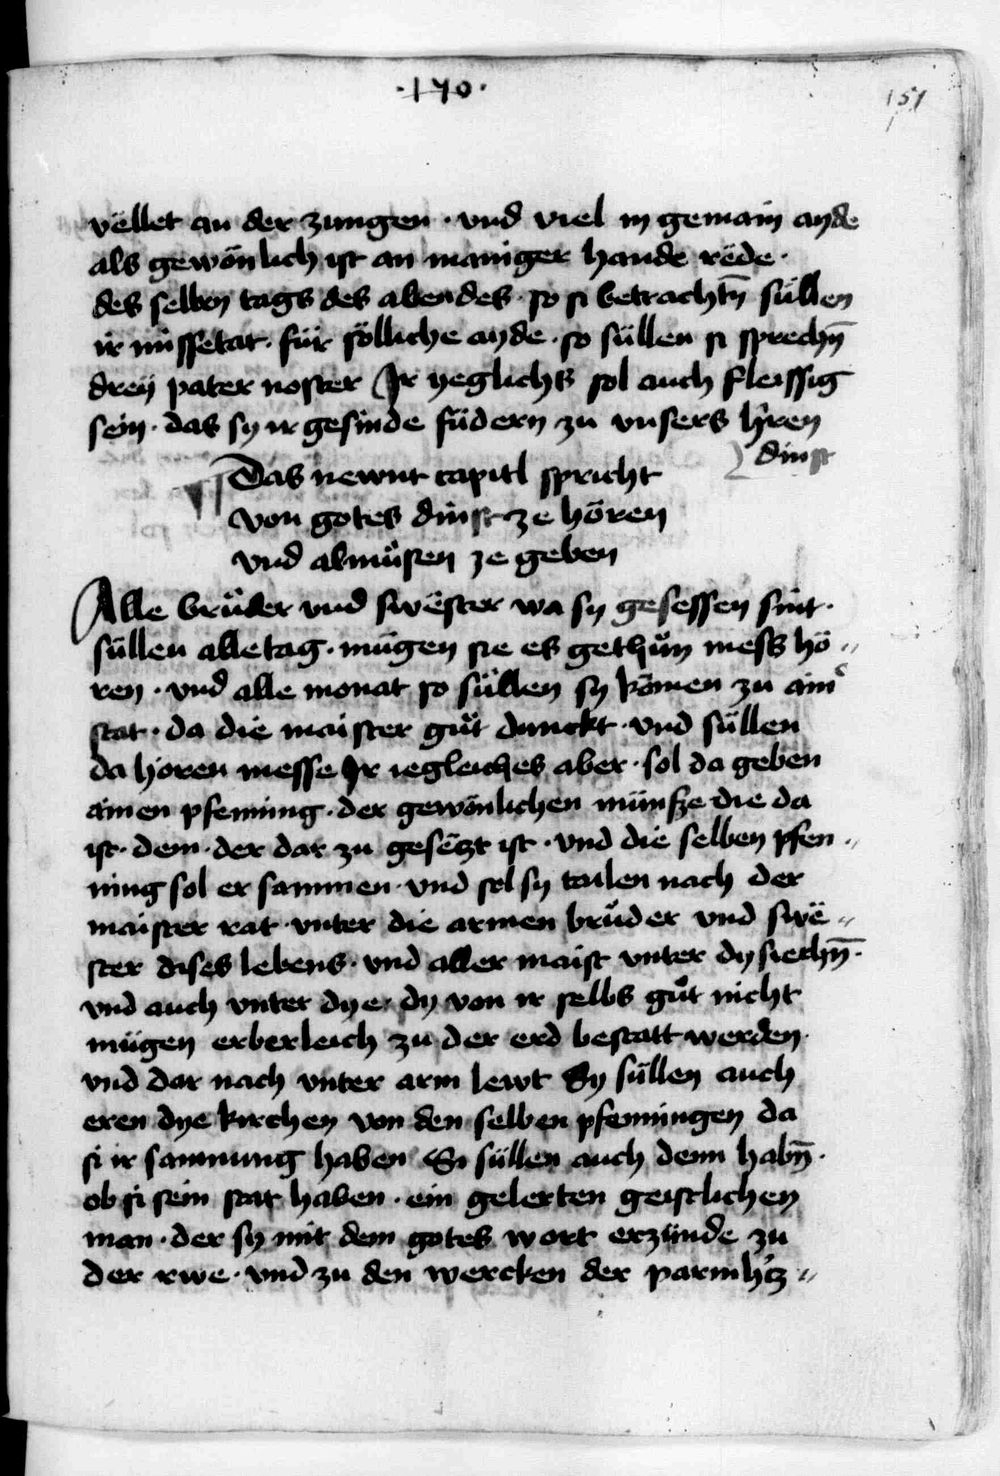 ·170·
151
vëllet an der zungen · vnd viel in gemain ayde
als gewönlich ist an maniger hande rëde ·
des selben tags des abendes · so si betrachtn̄ süllen
ir missetat · für sölliche ayde · so süllen si sprechn̄
dreÿ pater noster Ir yeglichs sol auch fleissig
sein · das sy ir gesinde füdern zu vnsers h'ren
dinst
Das newnt capitl spricht
von gotes dinst ze hören
vnd almůsen ze geben
Alle brůder vnd swëster wa sy gesessen sint ·
süllen alle tag · mügen sie es gethůn mess hö〃
ren · vnd alle monat so süllen sy kömen zu aim°
stat · da die maister gůt dunckt · vnd süllen
da hören messe Ir iegleiches aber · sol da geben
ainen pfenning · der gewönlichen münsze die da
ist · dem · der dar zu gesëtzt ist · vnd die selben pfen〃
ning sol er sammen · vnd sol sy tailen nach der
maister rat · vnter die armen brůder vnd swë〃
ster dises lebens · vnd aller maist vnter dy siechn̄ ·
vnd auch vnter dye · dy von ir selbs gůt nicht
mügen erberleich zu der erd bestatt werden ·
vnd dar nach vnter arm lewt Sy süllen auch
eren dye kirchen von den selben pfenningen da
si ir samnung haben Si süllen auch denn habn̄ ·
ob si sein stat haben · ein gelerten geistlichen
man · der sy mit dem gotes wort erzünde zu
der rwe · vnd zu den wercken der parmh'tz〃